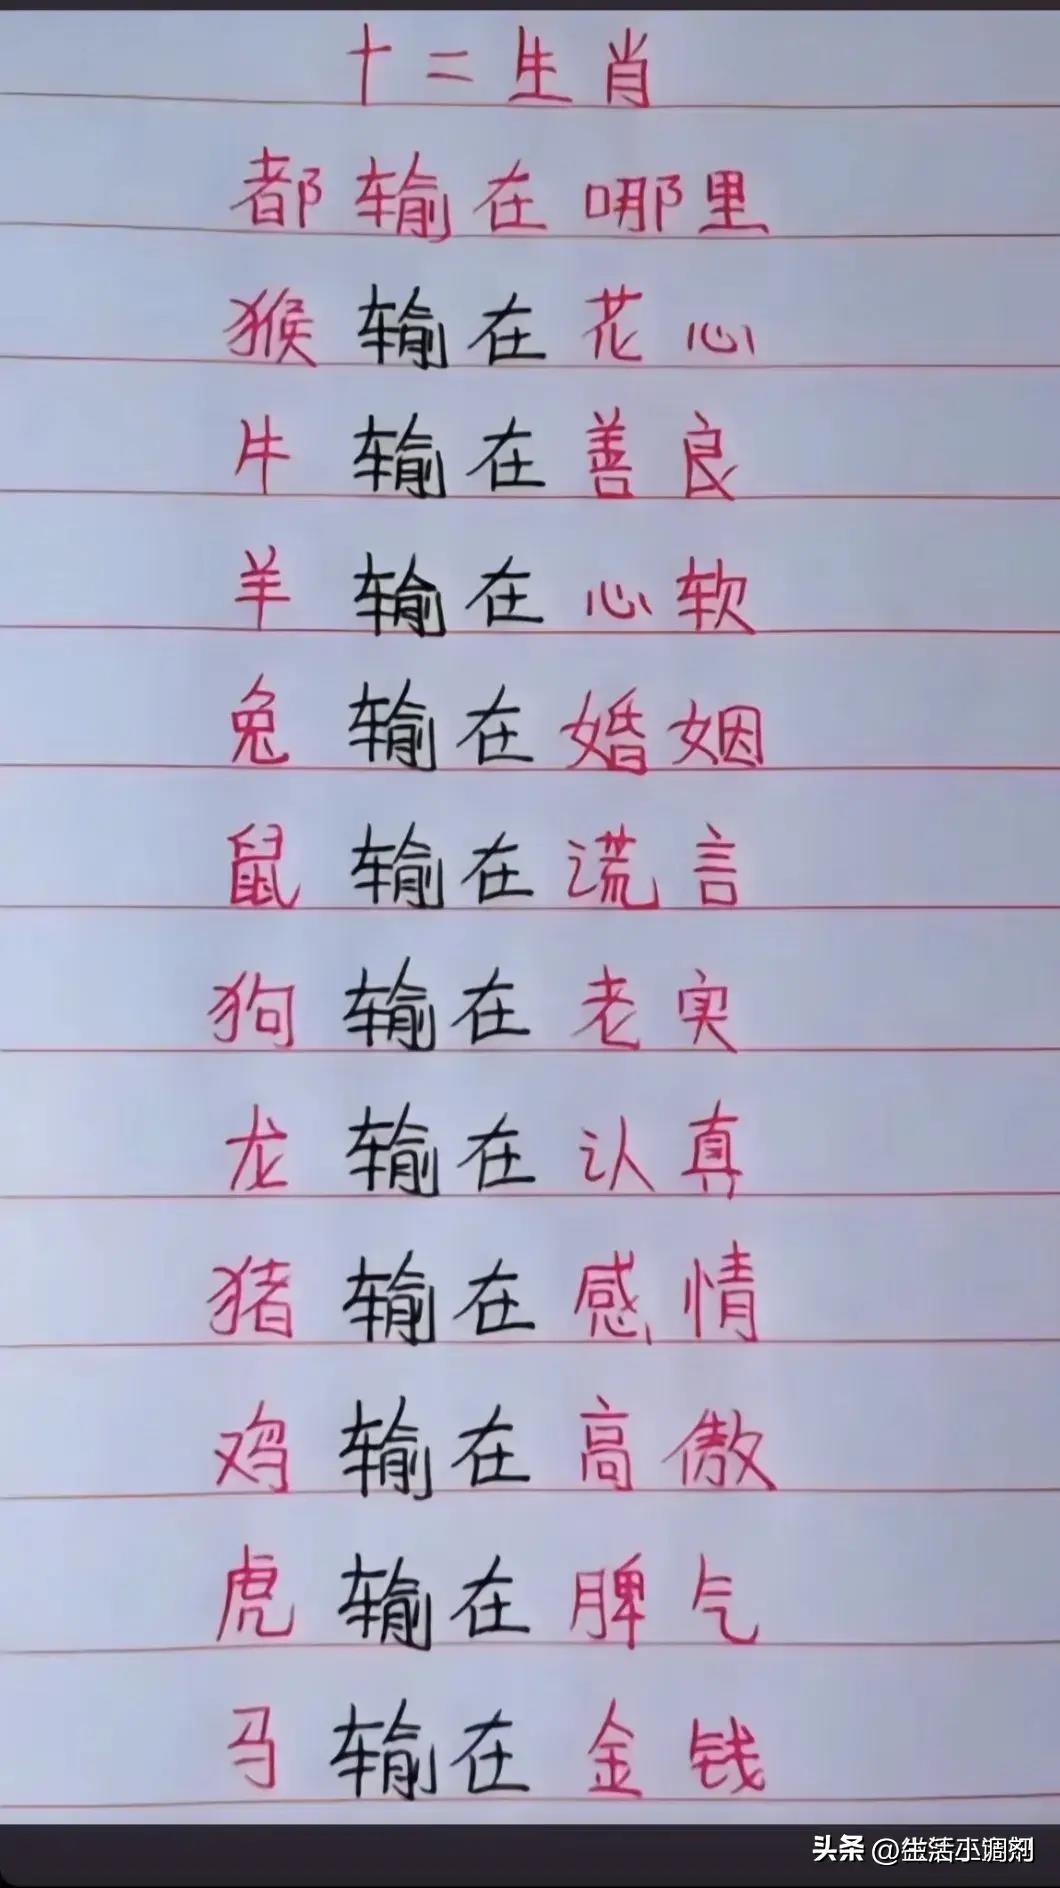 十二生肖
都输在哪里
猴输在花心
牛输在善良
羊输在心软
兔输在婚姻
鼠输在谎言
狗输在老实
龙输在认真
猪输在感情
鸡输在高傲
虎输在脾气
马输在金钱
头条 @生活小调剂